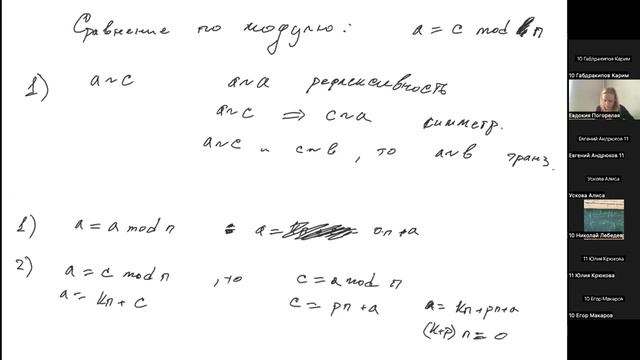 Сравнение по модулю: a = c mod n
1) a ~ c a ~ a рефлексивность
a ~ c ⇒ c ~ a симметр.
a ~ c и c ~ b, то a ~ b транз.
1) a = a mod n a = 0n + a
2) a = c mod n, то c = a mod n
a = kn + c c = pn + a a = kn + pn + a
(k+p) n = 0
10 Габдракипов Карим
10 Габдракипов Карим
Евдокия Погорелая
Евгений Андрюков 11
Евгений Андрюков 11
Ускова Алиса
Ускова Алиса
10 Николай Лебедев
11 Юлия Крюкова
11 Юлия Крюкова
10 Егор Макаров
10 Егор Макаров